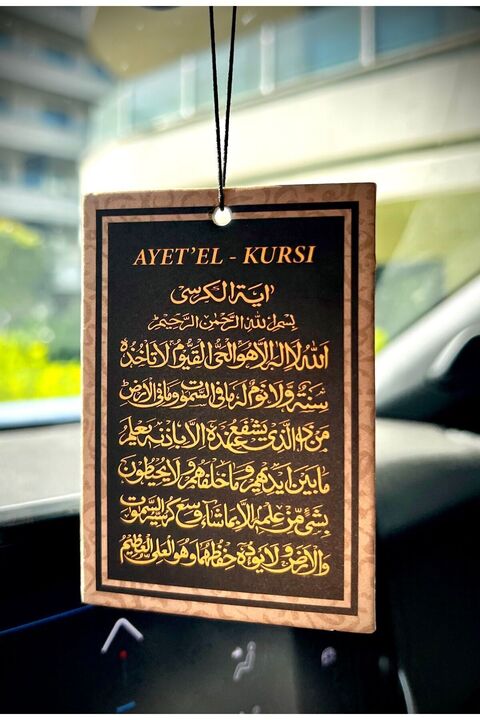 AYET'EL - KURSI
اية الكرسي
بسم الله الرحمن الرحيم
الله لا اله الا هو الحي القيوم لا تأخذه
سنة ولا نوم له ما في السموت وما في الارض
من ذا الذي يشفع عنده الا باذنه يعلم
ما بين ايديهم وما خلفهم ولا يحيطون
بشئ من علمه الا بما شاء وسع كرسيه السموت
والارض ولا يؤده حفظهما وهو العلي العظيم